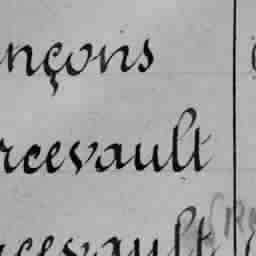 nçons
rcevault
rcevault